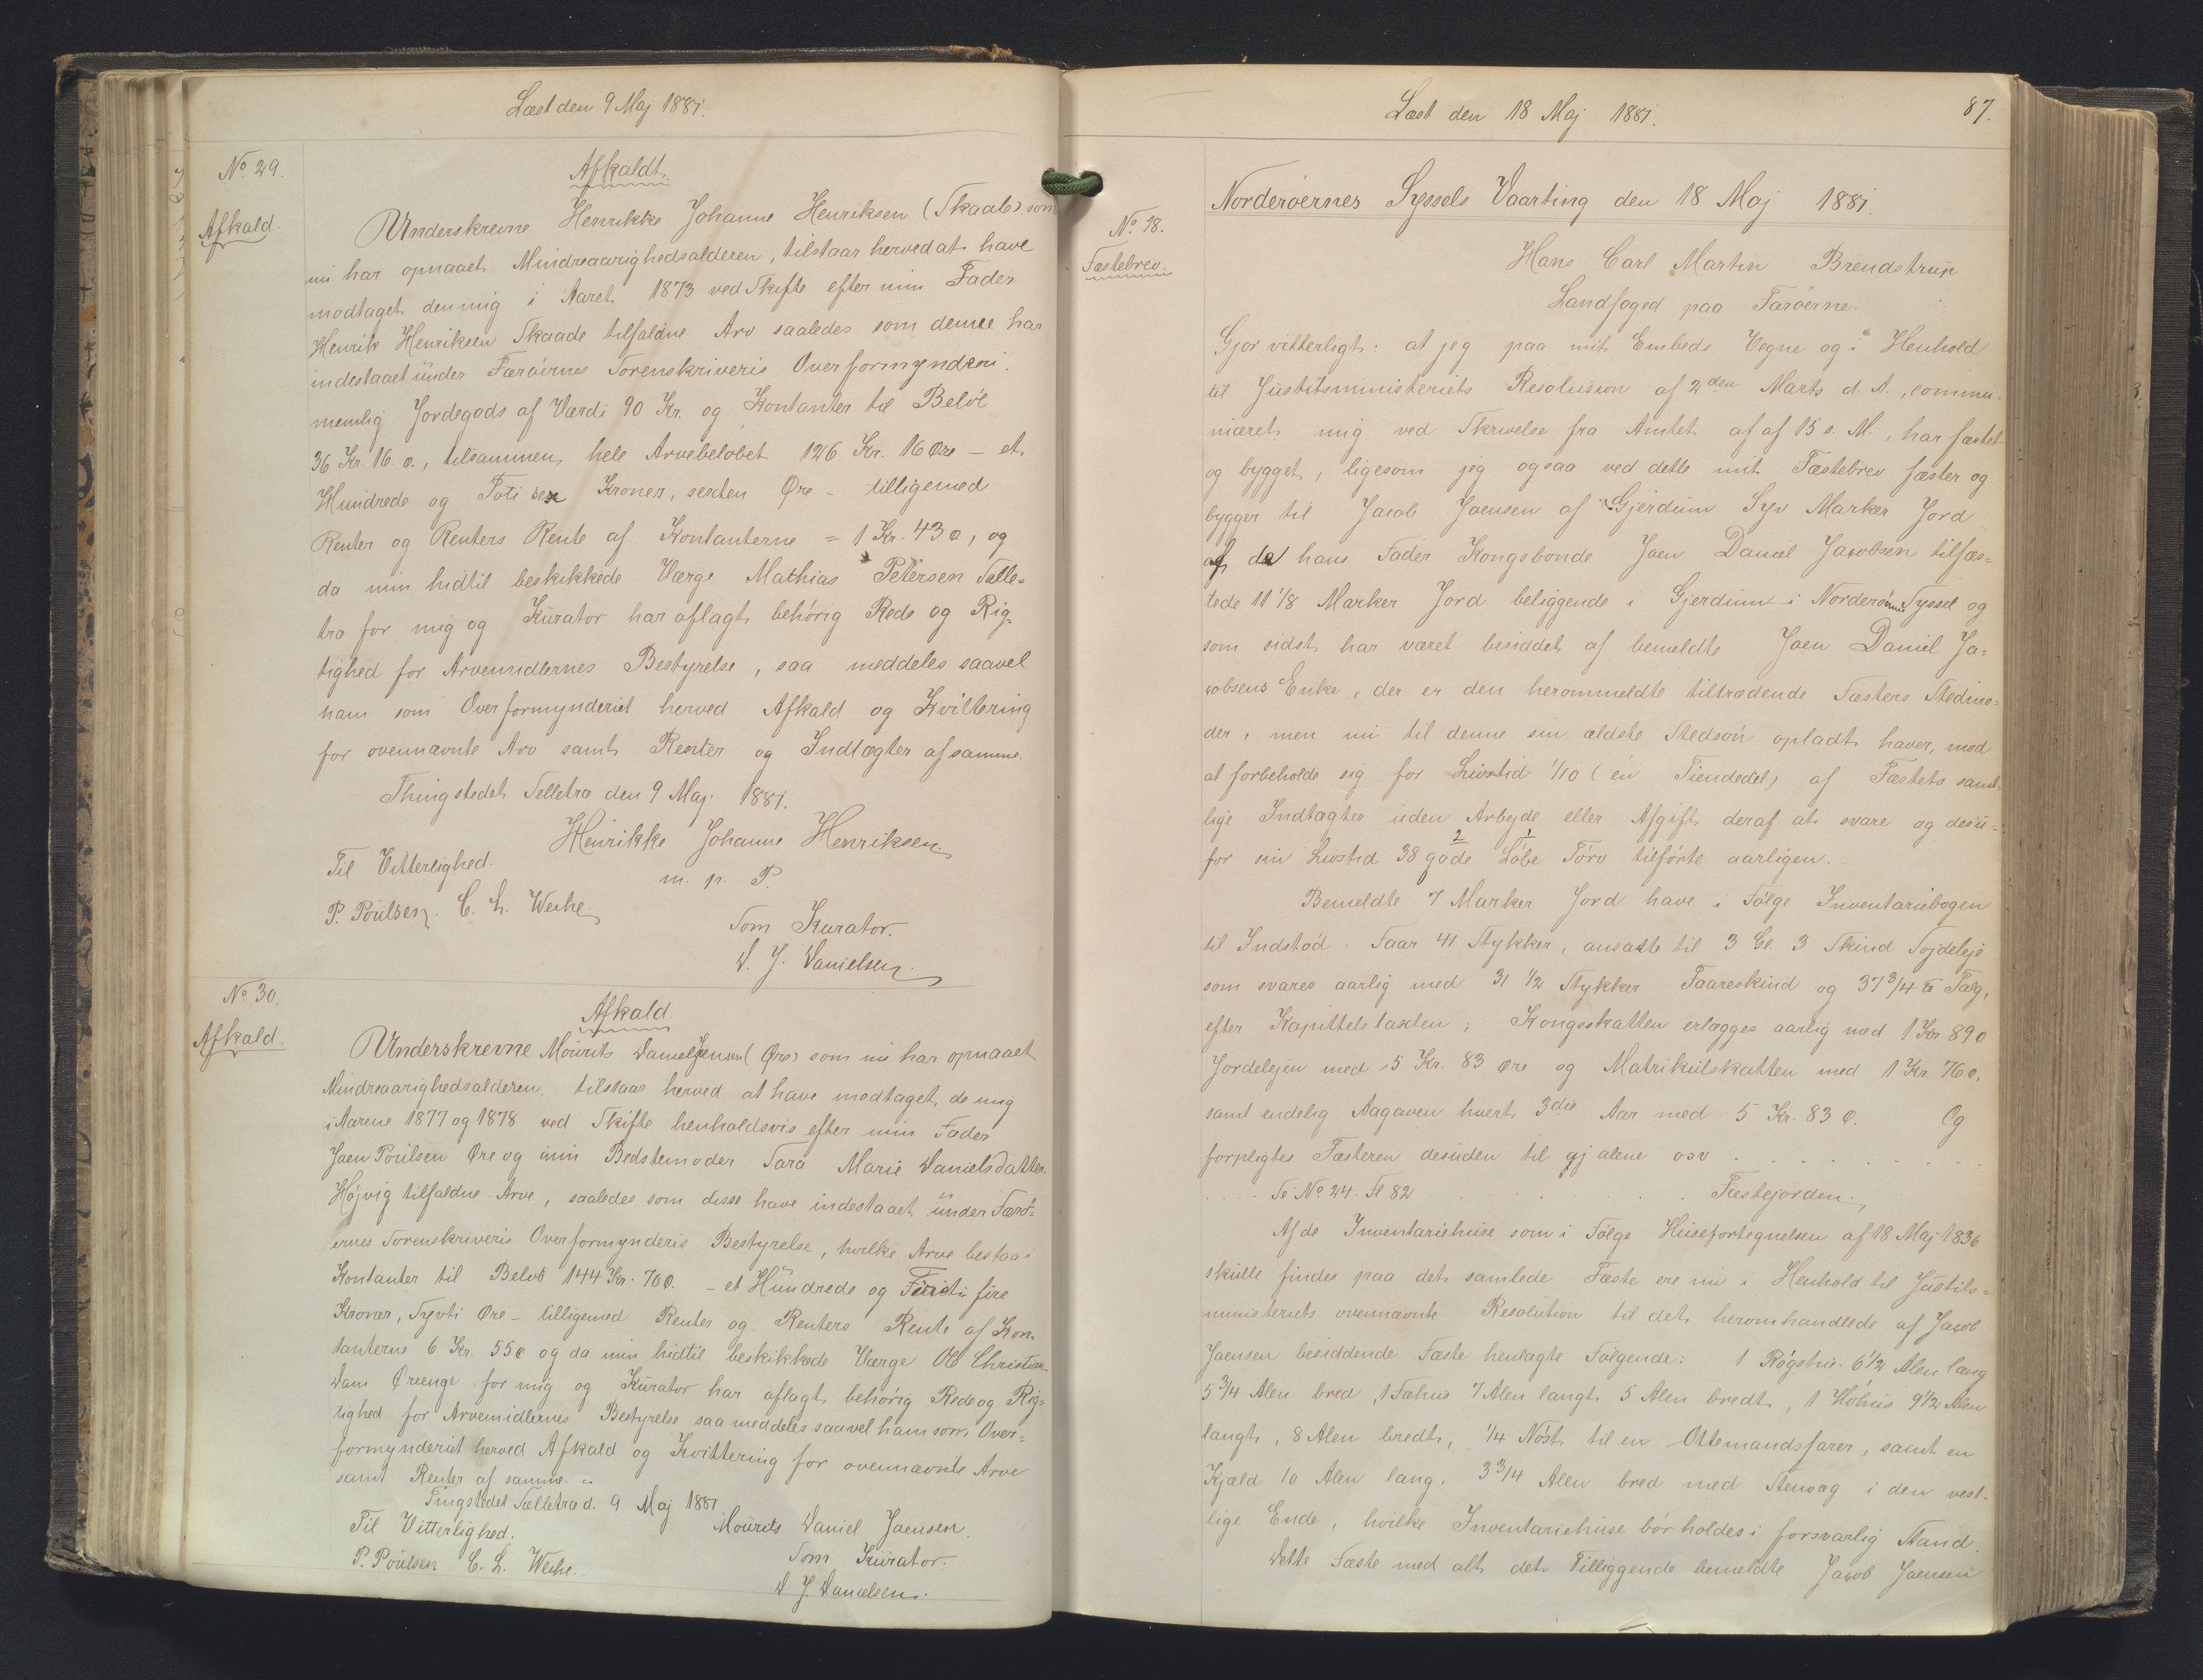 Læst den 9 Maj 1881.
No 29.
Afkald.
Afkaldt.
Underskrevne Henrikke Johanne Henriksen (Skaale) som
nu har opnaaet Mindreaarighedsalderen, tilstaar herved at have
modtaget den mig i Aaret 1873 ved Skifte efter min Fader
Henrik Henriksen Skaade tilfaldne Arv saaledes som denne har
indestaaet under Færøernes Sorenskriveris Overformynderi.
nemlig Jordegods af Værdi 90 Kr. og Kontanter til Beløb
36 Kr. 16 ø., tilsammen hele Arvebeløbet 126 Kr. 16 Øre – et
Hundrede og Toti sex Kroner, sexten Øre – tilligemed
Renter og Renters Rente af Kontanterne = 1 Kr. 43 ø, og
da min hidtil beskikkede Værge Mathias Petersen Selle-
tra for mig og Kurator har aflagt behørig Rede og Rig-
tighed for Arvemidlernes Bestyrelse, saa meddeles saavel
ham som Overformynderiet herved Afkald og Kvittering
for ovennævnte Arv samt Renter og Indtægter af samme.
Thingstedet Selletra den 9 Maj 1881.
Henrikke Johanne Henriksen
Til Vitterlighed.
m. p. P.
P. Poulsen. C. L. Weihe
Som Kurator.
D. J. Danielsen.
No 30.
Afkald.
Afkald
Underskrevne Mourits Daniel Jensen (Øre) som nu har opnaaet
Mindreaarighedsalderen, tilstaar herved at have modtaget de mig
i Aarene 1877 og 1878 ved Skifte henholdsvis efter min Fader
Joen Poulsen Øre og min Bedstemoder Sara Marie Danielsdatter
Højvig tilfaldne Arve, saaledes som disse have indestaaet under Færø-
ernes Sorenskriveris Overformynderis Bestyrelse, hvilke Arve bestaa i
Kontanter til Beløb 144 Kr. 70 ø. – et Hundrede og Firti fire
Kroner, Syvti Øre – tilligemed Renter og Renters Rente af Kon-
tanterne 6 Kr. 55 ø og da min hidtil beskikkede Værge Ole Christian
Dam Øreenge for mig og Kurator har aflagt behørig Rede og Rig-
tighed for Arvemidlernes Bestyrelse saa meddeles saavel ham som Over-
formynderiet herved Afkald og Kvittering for ovennævnte Arve
samt Renter af samme.
Tingstedet Selletra d. 9 Maj 1881
Til Vitterlighed.
Mourits Daniel Joensen.
P. Poulsen C. L. Weihe.
Som Kurator.
D. J. Danielsen.
Læst den 18 Maj 1881.
87.
Norderøernes Syssels Vaarting den 18 Maj 1881.
No. 18.
Fæstebrev.
Hans Carl Martin Brendstrup
Landfoged paa Færøerne.
Gjør vitterligt: at jeg paa mit Embeds Vegne og i Henhold
til Justitsministeriets Resolusion af 2den Marts d. A., commu-
niceret mig ved Skrivelse fra Amtet af af 15 s. M., har fæstet
og bygget, ligesom jeg ogsaa ved dette mit Fæstebrev fæster og
bygger til Jacob Joensen af Gjerdum Syv Marker Jord
af de hans Fader Kongsbonde Joen Daniel Jacobsen tilfæs-
tede 11 1/8 Marker Jord beliggende i Gjerdum i Norderøernes Syssel og
som sidst har været besiddet af bemeldte Joen Daniel Ja-
cobsens Enke, der er den herommeldte tiltrædende Fæsters Stedmo-
der, men nu til denne sin ældste Stedsøn opladt haver, mod
at forbeholde sig for Livstid 1/10 (én Tiendedel) af Fæstets samt-
lige Indtægter uden Arbejde eller Afgift deraf at svare og desu-
2 1
for sin Livstid 38 gode Løbe Tørv tilførte aarligen.
Bemeldte 7 Marker Jord have i Følge Inventariebogen
til Indstød. Faar 41 Stykker, ansatte til 3 Gl. 3 Skind Søjdeleje
som svares aarlig med 31 1/2 Stykker Faareskind og 37 3/4 ℔ Talg,
efter Kapittelstaxten; Kongsskatten erlægges aarlig med 1 Kr 89 ø
Jordelejen med 5 Kr. 83 Øre og Matrikulskatten med 1 Kr. 76 ø.
samt endelig Aagaven hvert 3die Aar med 5 Kr. 83 Ø. Og
forpligtes Fæsteren desuden til ej alene osv . . . . . .
. . . Se No 24. Fl 82 . . . . . Fæstejorden.
Af de Inventariehuse som i Følge Husefortegnelsen af 18 Maj 1836
skulle findes paa det samlede Fæste ere nu i Henhold til Justits-
ministeriets ovennævnte Resolution til det heromhandlede af Jacob
Joensen besiddende Fæste henlagte Følgende: 1 Røgstue 6 1/2 Alen lang
5 3/4 Alen bred, 1 Fæhus 7 Alen langt 5 Alen bredt, 1 Høhus 9 1/2 Alen
langt, 8 Alen bredt, 1/4 Nøst til en Ottemandsfarer, samt en
Kjæld 10 Alen lang. 3 3/4 Alen bred med Stenvæg i den vest-
lige Ende, hvilke Inventariehuse bør holdes i forsvarlig Stand.
Dette Fæste med alt det Tilliggende bemeldte Jacob Joensen